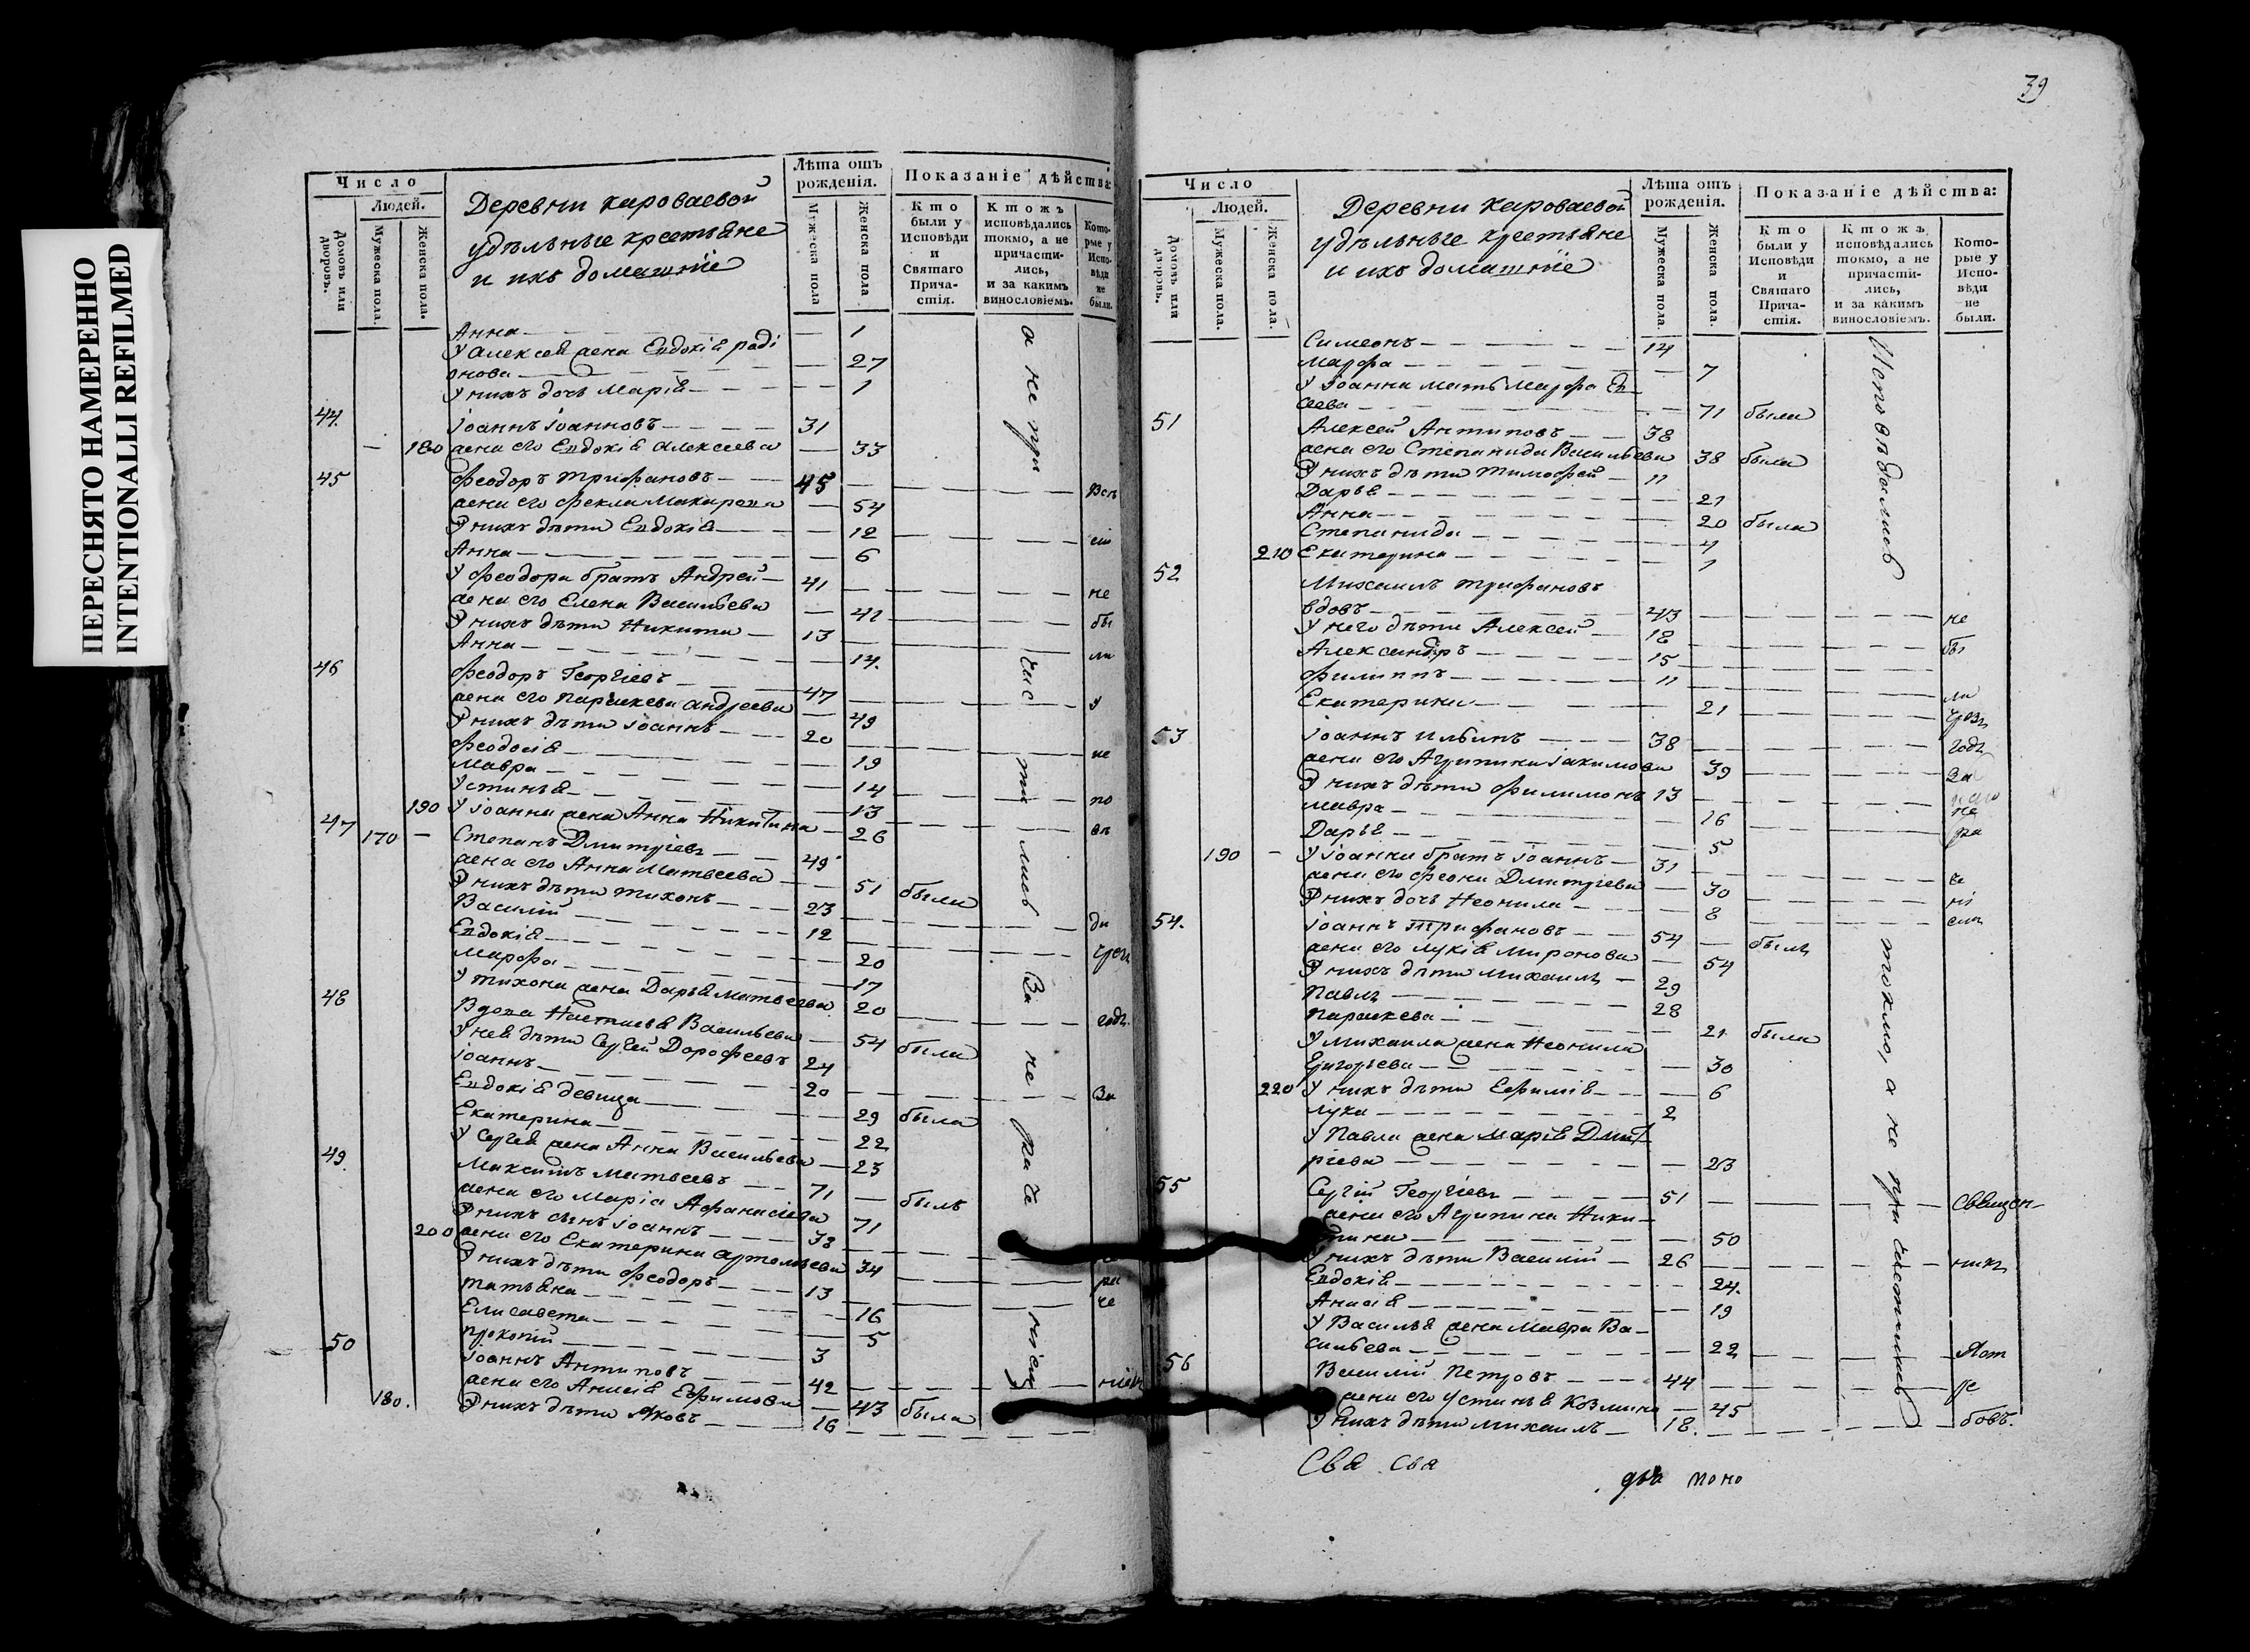 ПЕРЕСНЯТО НАМЕРЕННО
INTENTIONALLI REFILMED
Число
Людей.
Домовъ или дворовъ.
Мужеска пола.
Женска пола.
Деревни Кароваевой
удѣльные крестьяне
и ихъ домашніе
Лѣта отъ рожденія.
Мужеска пола
Женска пола
Показаніе дѣйства:
Кто были у Исповѣди и Святаго Причастія.
Ктожъ исповѣдались токмо, а не причастились, и за какимъ винословіемъ.
Которые у Исповѣди не были.
Анна 1
У Алексея жена Евдокія Роді
онова 27
У нихъ дочь Марія 1
44. Іоаннъ Іоанновъ 31
180 жена его Евдокія Алексеева 33
45 Феодоръ Трифановъ 45
жена его Фекла Макарова 54
У нихъ дѣти Евдокія 12
Анна 6
У Феодора братъ Андрей 41 не
жена его Елена Васильева 42 бы
У нихъ дѣти Никита 13
Анна 14. ли
46 Феодоръ Георгіевъ 47
жена его Параскева Андреева 49 у
У нихъ дѣти Іоаннъ 20
Феодосія 19
Мавра 14
Устинья 13 по
190 У Іоанна жена Анна Никитина 26
47 170 Степанъ Дмитріевъ 49
жена его Анна Матвеева 51 были
У нихъ дѣти Тихонъ 23
Василій 12
Евдокія 20
Марфа 17
У Тихона жена Дарья Матвеева 20
48 Вдова Настасья Васильева 54 была
У нея дѣти Сергей Дорофеевъ 24
Іоаннъ 20 За
Евдокія девица 29 была
Екатерина 22
У Сергея жена Анна Васильева 23
49. Максимъ Матвеевъ 71 былъ
жена его Марія Афанасіева 71
У нихъ сынъ Іоаннъ 38
200 жена его Екатерина Артемьева 34
У нихъ дѣти Феодоръ 13
Татьяна 16
Елисавета 5
Прокопій 3
50 Іоаннъ Антиповъ 42
жена его Анисія Ефимова 43 была
180. У нихъ дѣти Яковъ 16
39
Число
Людей.
Домовъ или дворовъ.
Мужеска пола.
Женска пола.
Деревни Кароваевой
удѣльные крестьяне
и ихъ домашніе
Лѣта отъ рожденія.
Мужеска пола.
Женска пола.
Показаніе дѣйства:
Кто были у Исповѣди и Святаго Причастія.
Ктожъ исповѣдались токмо, а не причастились, и за какимъ винословіемъ.
Которые у Исповѣди не были.
Симеонъ 14
Марфа 7
У Іоанна мать Марфа Ев
сеева 71 была
51 Алексей Антиповъ 38
жена его Степанида Васильева 38 была
У нихъ дѣти Тимофей 11
Дарья 21
Анна 20 была
Степанида 4
210 Екатерина 1
52 Михаилъ Трифановъ
вдовъ 43 не
У него дѣти Алексей 18 бы
Александръ 15
Филиппъ 11 ли
Екатерина 21 чрезъ
53 Іоаннъ Ильинъ 38 годъ
жена его Агрипина Іакимова 39 За
У нихъ дѣти Филимонъ 13
Мавра 16 не
Дарья 5 ра
190 У Іоанна братъ Іоаннъ 31
жена его Феона Дмитріева 30
У нихъ дочь Неонила 8
54. Іоаннъ Трифановъ 54 былъ
жена его Лукія Миронова 54
У нихъ дѣти Михаилъ 29
Павлъ 28
Параскева 21 была
У Михаила жена Неонила
Григорьева 30
220 У нихъ дѣти Ефимія 6
Лука 2
У Павла жена Марія Дмит
ріева 23
55 Сергій Георгіевъ 51 Священ-
жена его Агрипина Ники-
тина 50
У нихъ дѣти Василій 26 никъ
Евдокія 24.
Анисія 19
У Василья жена Мавра Ва-
сильева 22
56 Василій Петровъ 44
жена его Устинья Козмина 45
У нихъ дѣти Михаилъ 18.
Исповѣдались токмо, а не причастились
Свя Свя
два